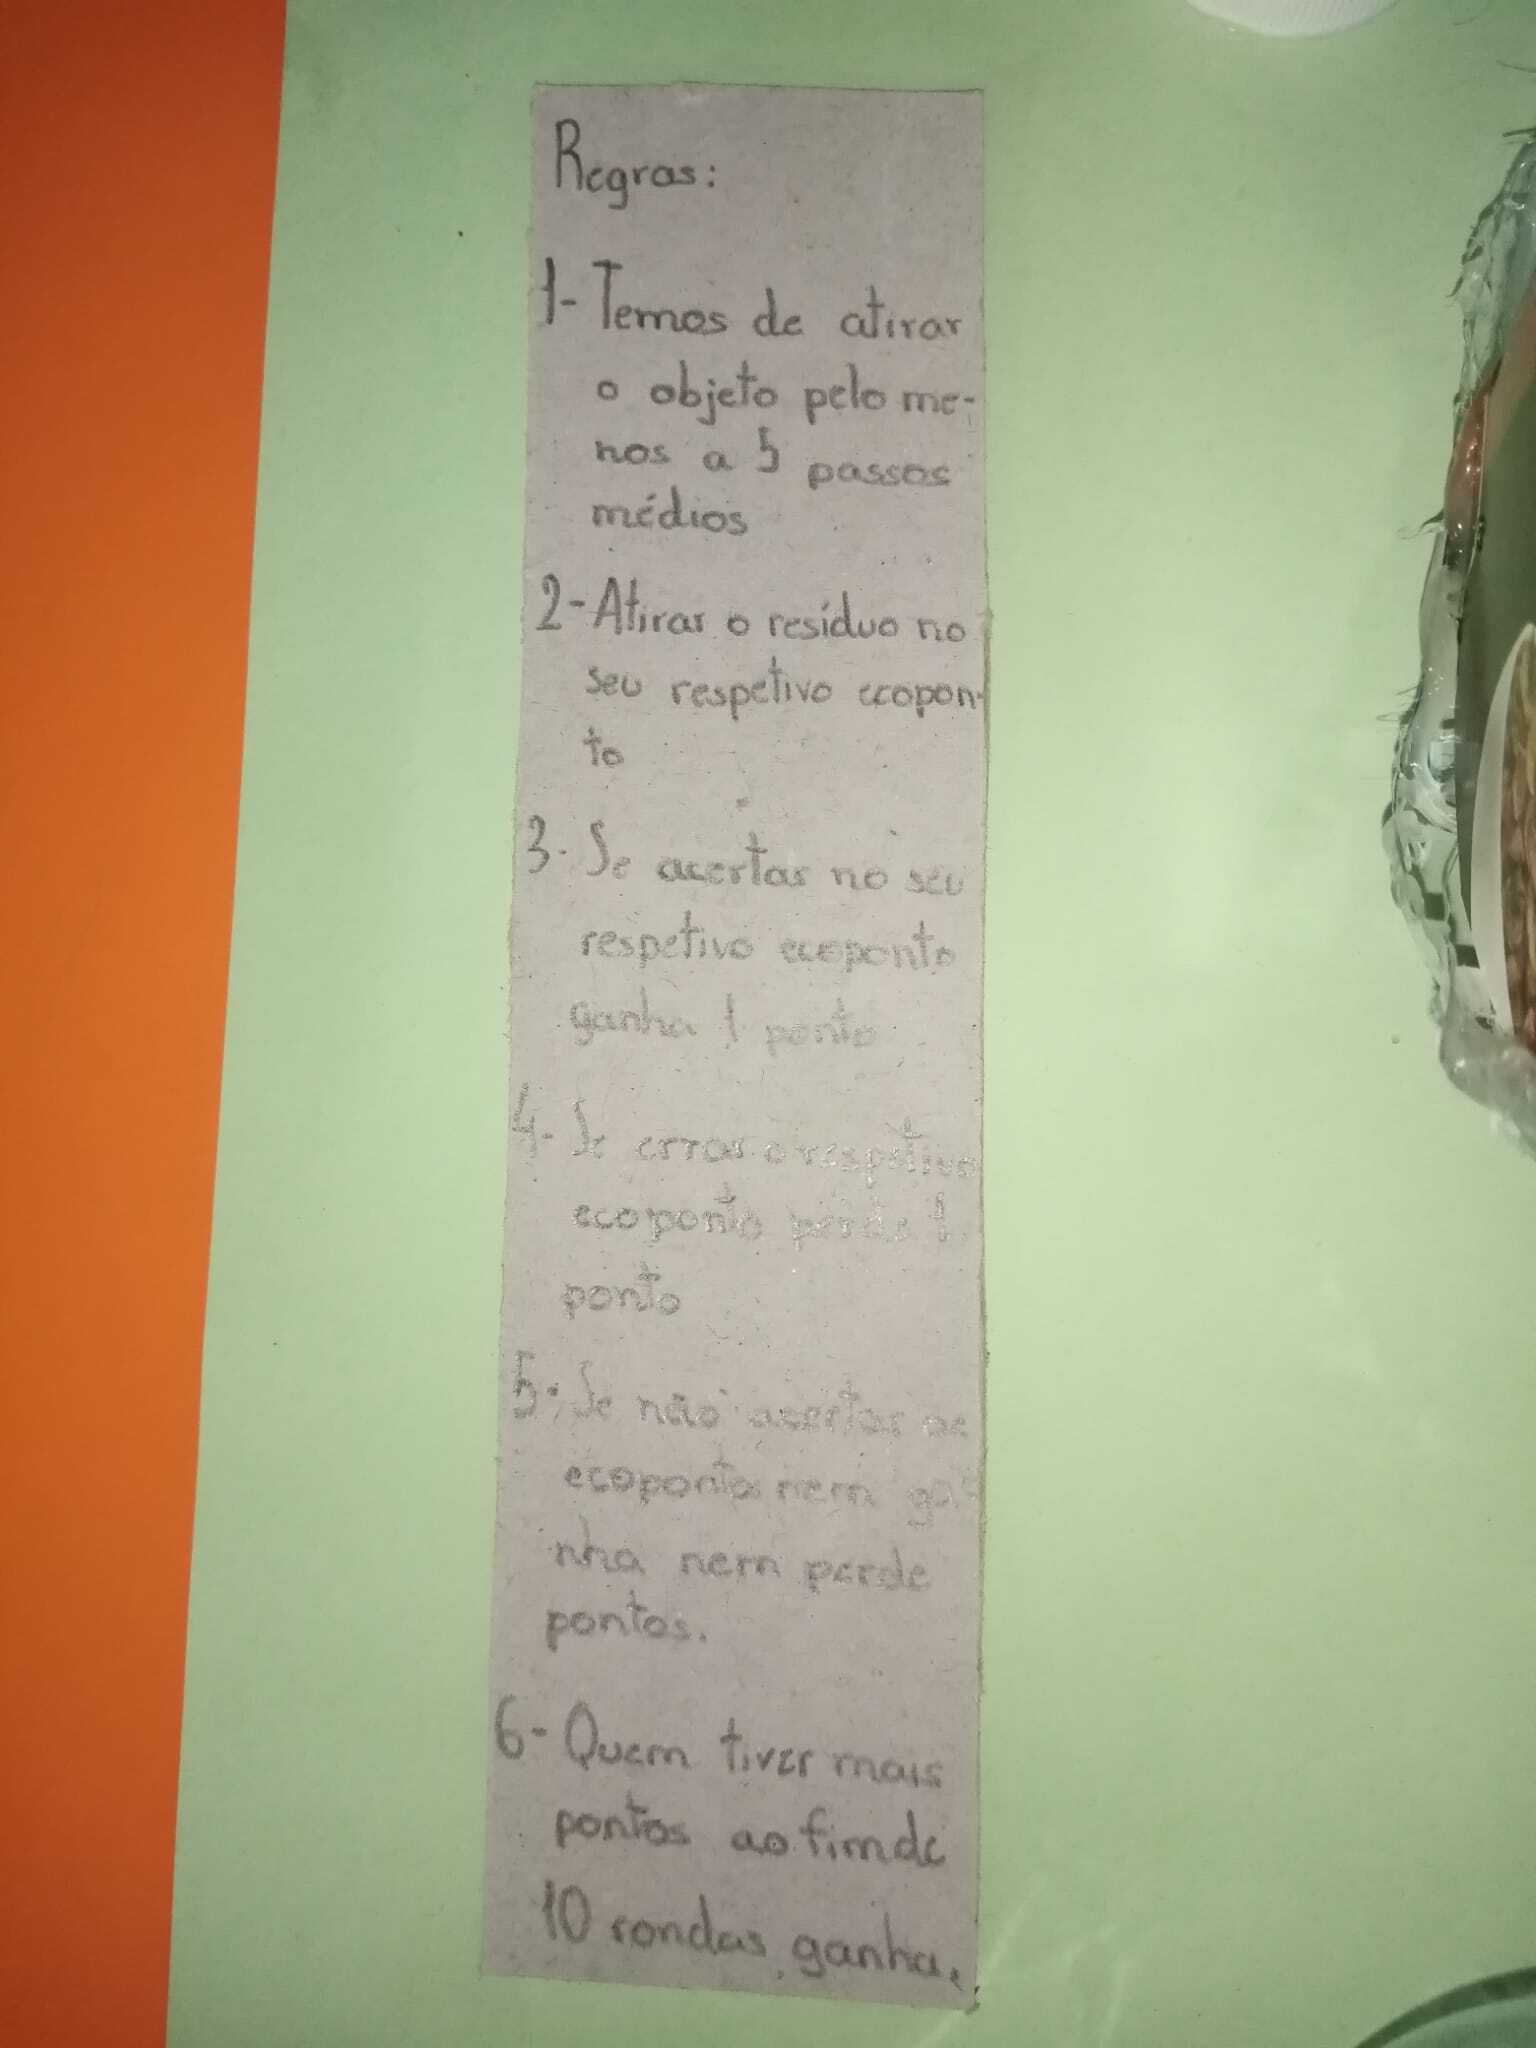 Regras:
1- Temos de atirar
o objeto pelo me-
nos a 5 passos
médios
2- Atirar o resíduo no
seu respetivo ecopon-
to
3- Se acertar no seu
respetivo ecoponto
ganha 1 ponto
4- Se errar o respetivo
ecoponto perde 1
ponto
5- Se não acertar no
ecoponto nem ga-
nha nem perde
pontos.
6- Quem tiver mais
pontos ao fim de
10 rondas, ganha.